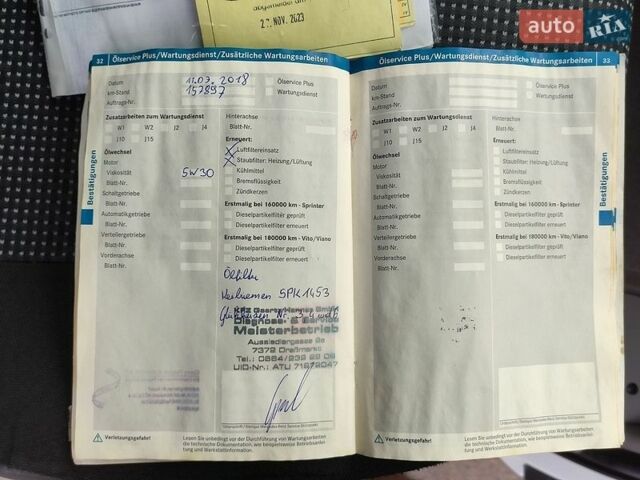 27. NOV. 2023
auto RIA
32 Ölservice Plus/Wartungsdienst/Zusätzliche Wartungsarbeiten
Datum 11.07.2018 Ölservice Plus
km-Stand 157897 Wartungsdienst
Auftrags-Nr.
Zusatzarbeiten zum Wartungsdienst
W1 W2 J2 J4
J10 J15
Ölwechsel
Motor
Viskosität 5W30
Blatt-Nr.
Schaltgetriebe
Blatt-Nr.
Automatikgetriebe
Blatt-Nr.
Verteilergetriebe
Blatt-Nr.
Vorderachse
Blatt-Nr.
Hinterachse
Blatt-Nr.
Erneuert:
Luftfiltereinsatz
Staubfilter: Heizung/Lüftung
Kühlmittel
Bremsflüssigkeit
Zündkerzen
Erstmalig bei 160000 km - Sprinter
Dieselpartikelfilter geprüft
Dieselpartikelfilter erneuert
Erstmalig bei 180000 km - Vito/Viano
Dieselpartikelfilter geprüft
Dieselpartikelfilter erneuert
Ölfilter
Keilriemen 5PK1453
Diagnose- & Service
Meisterbetrieb
Aussiedlergasse 9a
Tel.:
UID-Nr.: ATU
Bestätigungen
Verletzungsgefahr!
Lesen Sie unbedingt vor der Durchführung von Wartungsarbeiten
die technische Dokumentation, wie beispielsweise Betriebsanlei-
tung und Werkstattinformation.
Ölservice Plus/Wartungsdienst/Zusätzliche Wartungsarbeiten 33
Datum Ölservice Plus
km-Stand Wartungsdienst
Auftrags-Nr.
Zusatzarbeiten zum Wartungsdienst
W1 W2 J2 J4
J10 J15
Ölwechsel
Motor
Viskosität
Blatt-Nr.
Schaltgetriebe
Blatt-Nr.
Automatikgetriebe
Blatt-Nr.
Verteilergetriebe
Blatt-Nr.
Vorderachse
Blatt-Nr.
Hinterachse
Blatt-Nr.
Erneuert:
Luftfiltereinsatz
Staubfilter: Heizung/Lüftung
Kühlmittel
Bremsflüssigkeit
Zündkerzen
Erstmalig bei 160000 km - Sprinter
Dieselpartikelfilter geprüft
Dieselpartikelfilter erneuert
Erstmalig bei 180000 km - Vito/Viano
Dieselpartikelfilter geprüft
Dieselpartikelfilter erneuert
Bestätigungen
Verletzungsgefahr!
Lesen Sie unbedingt vor der Durchführung von Wartungsarbeiten
die technische Dokumentation, wie beispielsweise Betriebsanlei-
tung und Werkstattinformation.